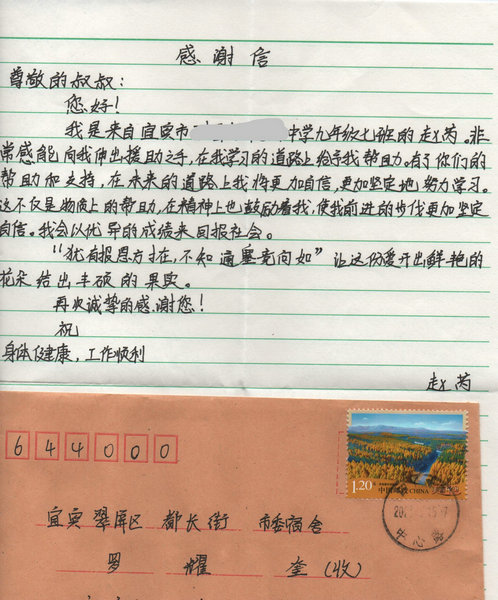 感谢信
尊敬的叔叔：
您好！
我是来自宜宾市 中学九年级七班的赵芮。非
常感能向我伸出援助之手，在我学习的道路上给予我帮助。有了你们的
帮助和支持，在未来的道路上我将更加自信，更加坚定地努力学习。
这不仅是物质上的帮助，在精神上也鼓励着我，使我前进的步伐更加坚定
自信。我会以优异的成绩来回报社会。
“犹有报恩方寸在，不知通塞竟何如”让这份爱开出鲜艳的
花朵结出丰硕的果实。
再次诚挚的感谢您！
祝
身体健康，工作顺利
赵芮
644000
1.20
中国邮政 CHINA
中心
宜宾翠屏区都长街市委宿舍
罗耀奎(收)